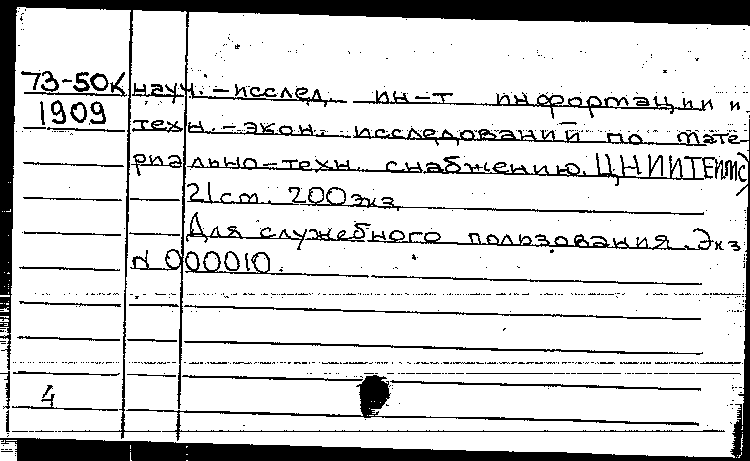 73-50К науч.-исслед. ин-т информации и
1909 техн.-экон. исследований по мате-
риально-техн. снабжению. ЦНИИТЭИМС)
21 см. 200 экз.
Для служебного пользования. Экз
N 000010.
4